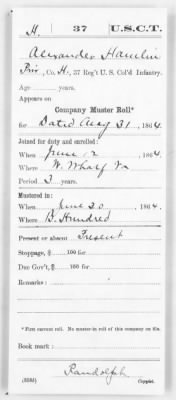 H. 37 U.S.C.T.
Alexander Hamlin
Priv, Co. H, 37 Reg't U. S. Col'd Infantry.
Age years.
Appears on
Company Muster Roll*
for Dated Aug 31, 1864.
Joined for duty and enrolled:
When June 12, 1864.
Where W. Wharf Va
Period 3 years.
Mustered in:
When June 20, 1864.
Where B. Hundred
Present or absent Present
Stoppage, $ 100 for
Due Gov't, $ 100 for
Remarks:
* First current roll. No muster-in roll of this company on file.
Book mark:
Randolph
(858) Copyist.